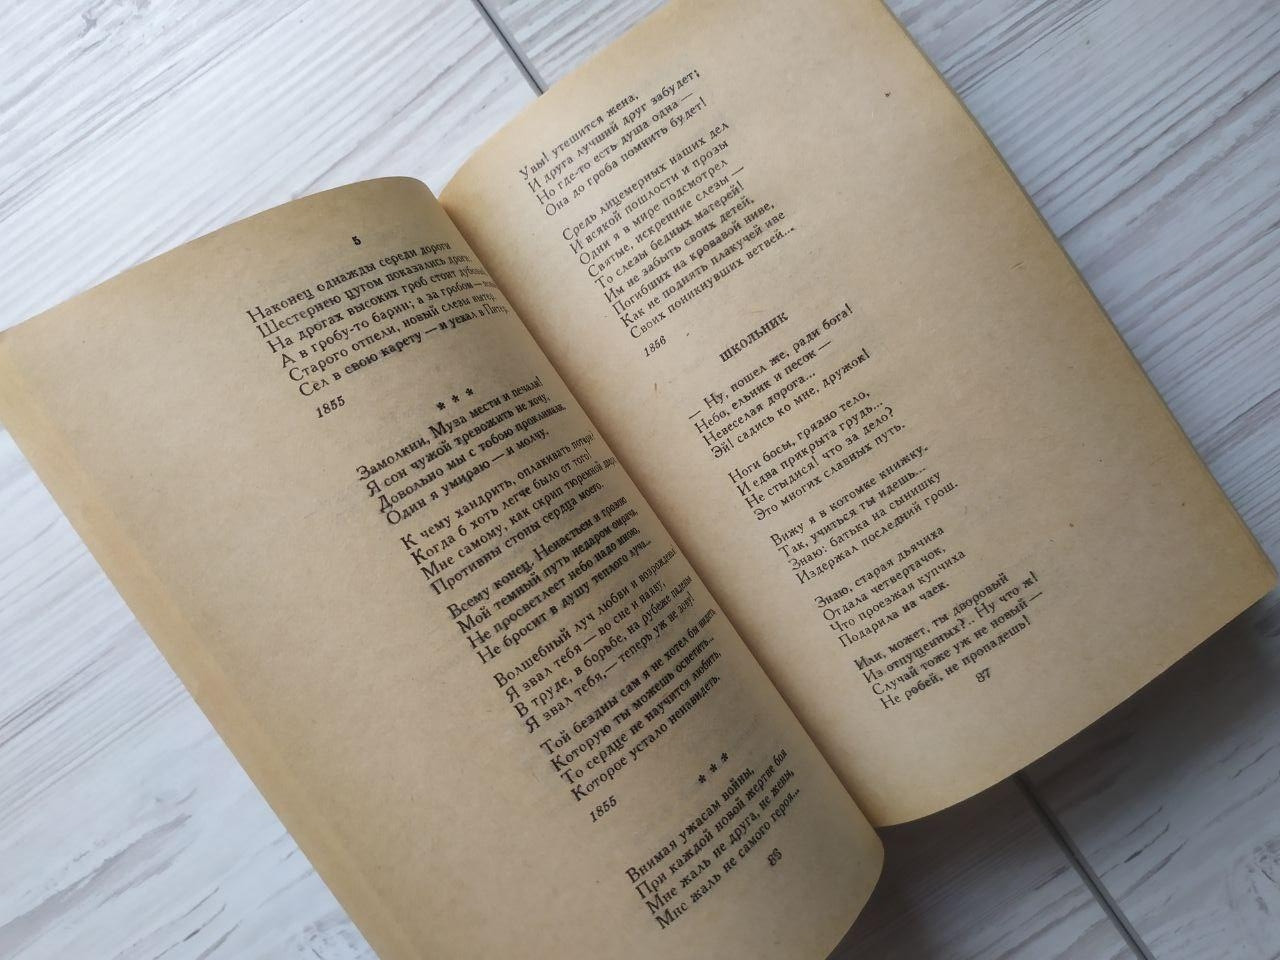 5
Наконец однажды середи дороги
Шестернею цугом показались дроги:
На дрогах высоких гроб стоит дубовый,
А в гробу-то барин; а за гробом —
Старого отпели, новый слезы вытер,
Сел в свою карету — и уехал в Питер.
1855
* * *
Замолкни, Муза мести и печали!
Я сон чужой тревожить не хочу,
Довольно мы с тобою проклинали.
Один я умираю — и молчу.
К чему хандрить, оплакивать потери?
Когда б хоть легче было от того!
Мне самому, как скрип тюремной двери,
Противны стоны сердца моего.
Всему конец. Ненастьем и грозою
Мой темный путь недаром омрача,
Не просветлеет небо надо мною,
Не бросит в душу теплого луча...
Волшебный луч любви и возрожденья!
Я звал тебя — во сне и наяву,
В труде, в борьбе, на рубеже паденья
Я звал тебя, — теперь уж не зову!
Той бездны сам я не хотел бы видеть,
Которую ты можешь осветить...
То сердце не научится любить,
Которое устало ненавидеть.
1855
* * *
Внимая ужасам войны,
При каждой новой жертве боя
Мне жаль не друга, не жены,
Мне жаль не самого героя...
86
Увы! утешится жена,
И друга лучший друг забудет;
Но где-то есть душа одна —
Она до гроба помнить будет!
Средь лицемерных наших дел
И всякой пошлости и прозы
Одни я в мире подсмотрел
Святые, искренние слезы —
То слезы бедных матерей!
Им не забыть своих детей,
Погибших на кровавой ниве,
Как не поднять плакучей иве
Своих поникнувших ветвей...
1856
ШКОЛЬНИК
— Ну, пошел же, ради бога!
Небо, ельник и песок —
Невеселая дорога...
Эй! садись ко мне, дружок!
Ноги босы, грязно тело,
И едва прикрыта грудь...
Не стыдися! что за дело?
Это многих славных путь.
Вижу я в котомке книжку.
Так, учиться ты идешь...
Знаю: батька на сынишку
Издержал последний грош.
Знаю, старая дьячиха
Отдала четвертачок,
Что проезжая купчиха
Подарила на чаек.
Или, может, ты дворовый
Из отпущенных?.. Ну что ж!
Случай тоже уж не новый —
Не робей, не пропадешь!
87